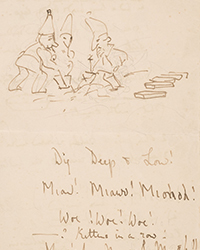 Dig Deep & Low!
Miaw! Miaw! Miowow!
Woe! Woe! Woe!
—? Kittens in a row!